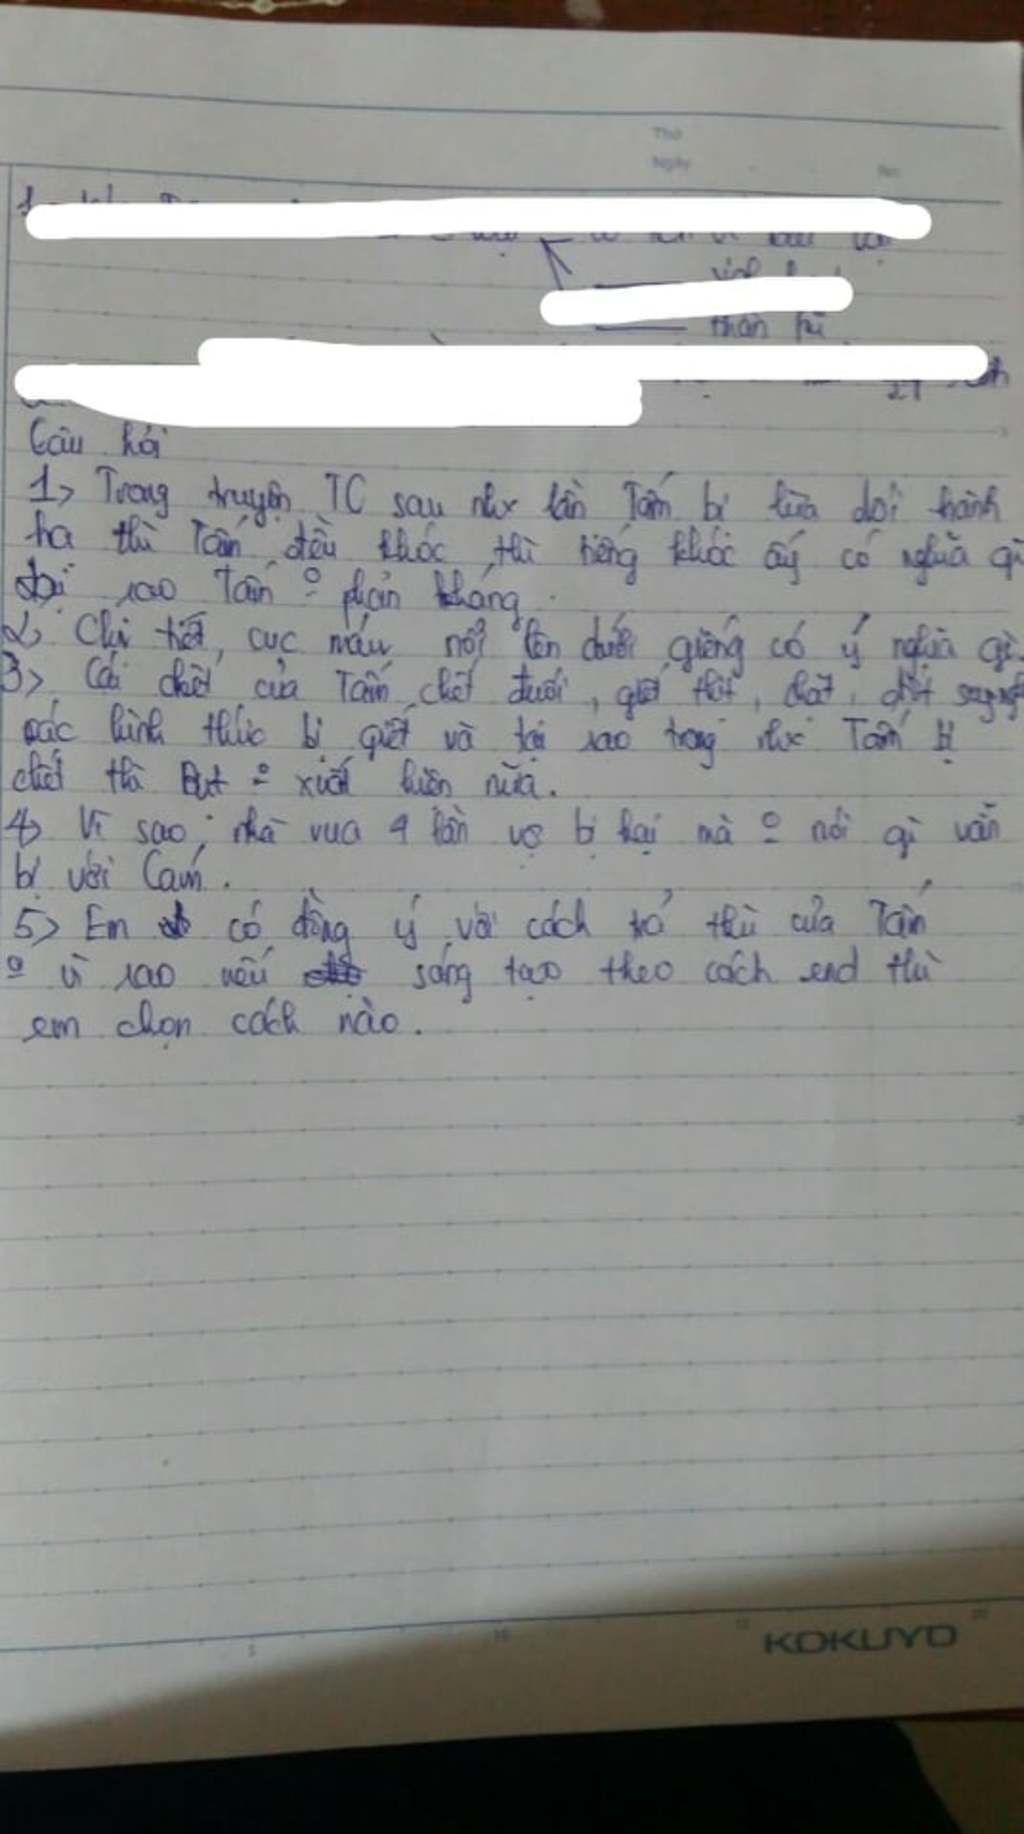 Thứ
Ngày
No
thần kì
Câu hỏi
1> Trong truyện TC sau mỗi lần Tấm bị lừa dối hành
hạ thì Tấm đều khóc, thì tiếng khóc ấy có nghĩa gì
sao Tấm phản kháng.
2> Chi tiết cục máu nổi lên dưới giếng có ý nghĩa gì.
3> Cái chết của Tấm chết đuối, giết thịt, chặt, đốt
các hình thức bị giết và tại sao trong Tấm bị
chết thì Bụt xuất hiện nữa.
4> Vì sao nhà vua 4 lần vợ bị hại mà nói gì vẫn
bị với Cám.
5> Em có đồng ý với cách trả thù của Tấm
vì sao nếu sáng tạo theo cách end thì
em chọn cách nào.
5
10
15
20
KOKUYO